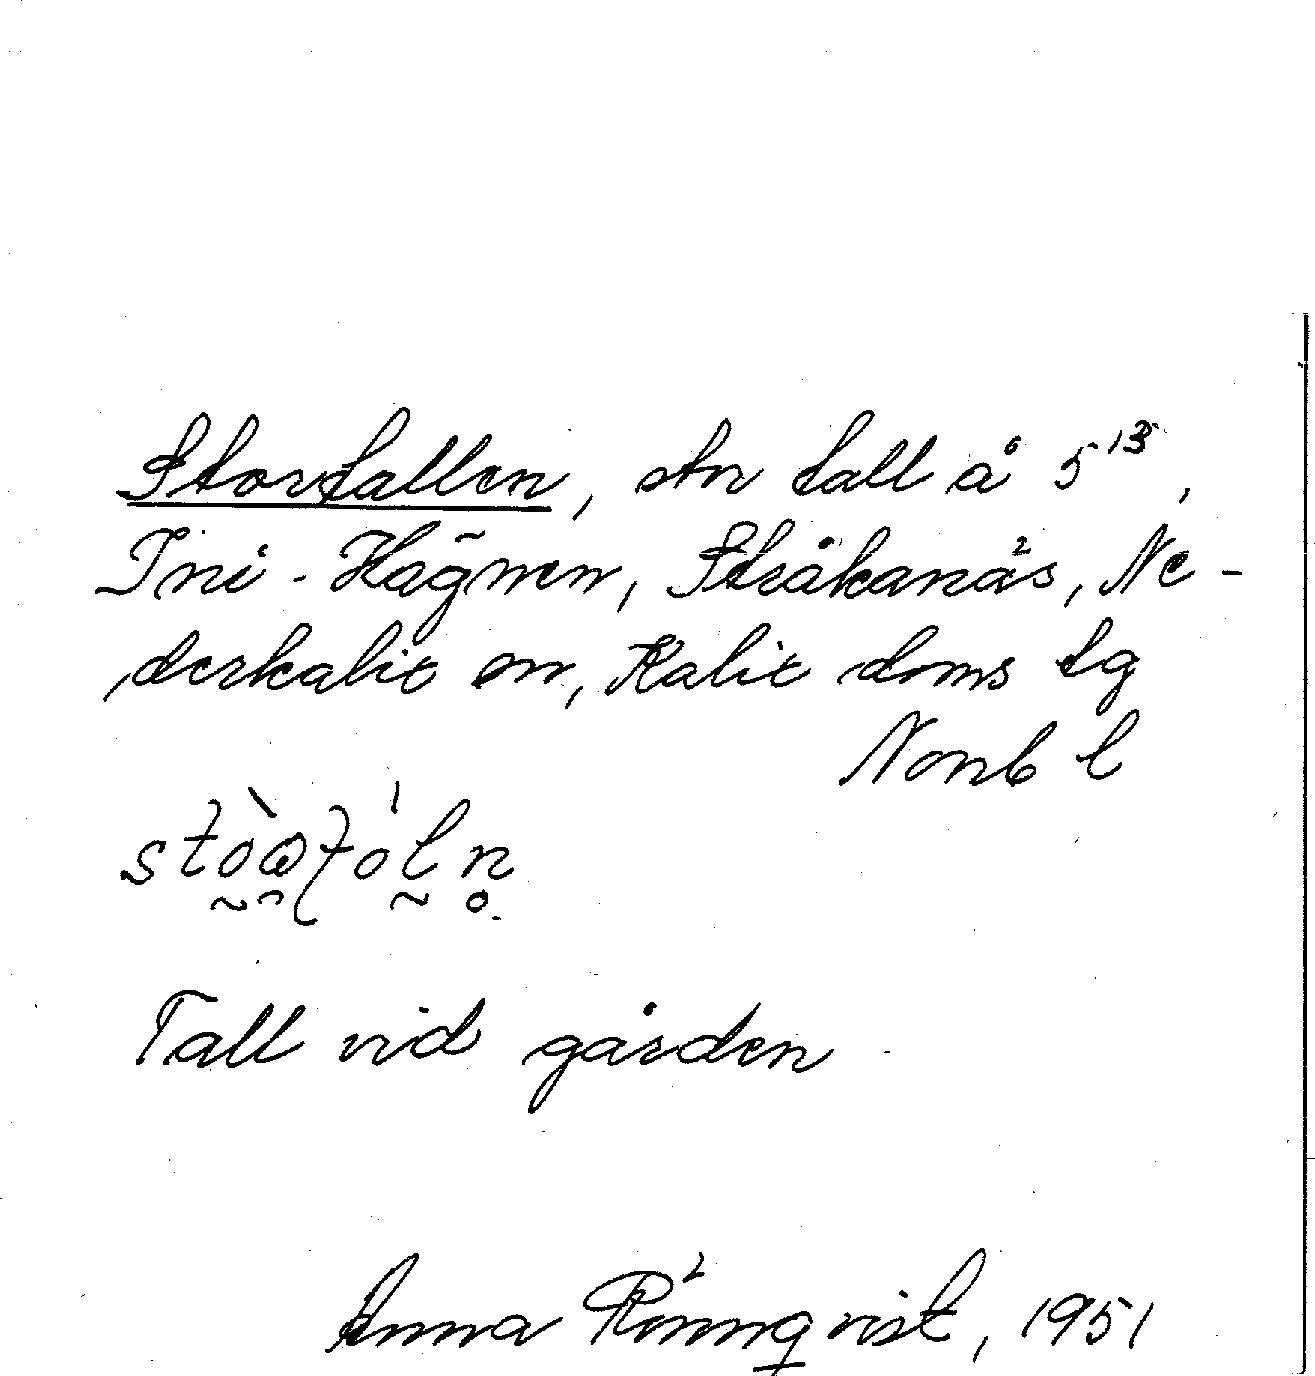 Stortallen, stn tall å 5¹³,
Ini-Hägnen, Stråkanäs, Ne-
derkalix sn, Kalix doms tg
Nonb l
Tall vid gården
Anna Rönnqvist, 1951